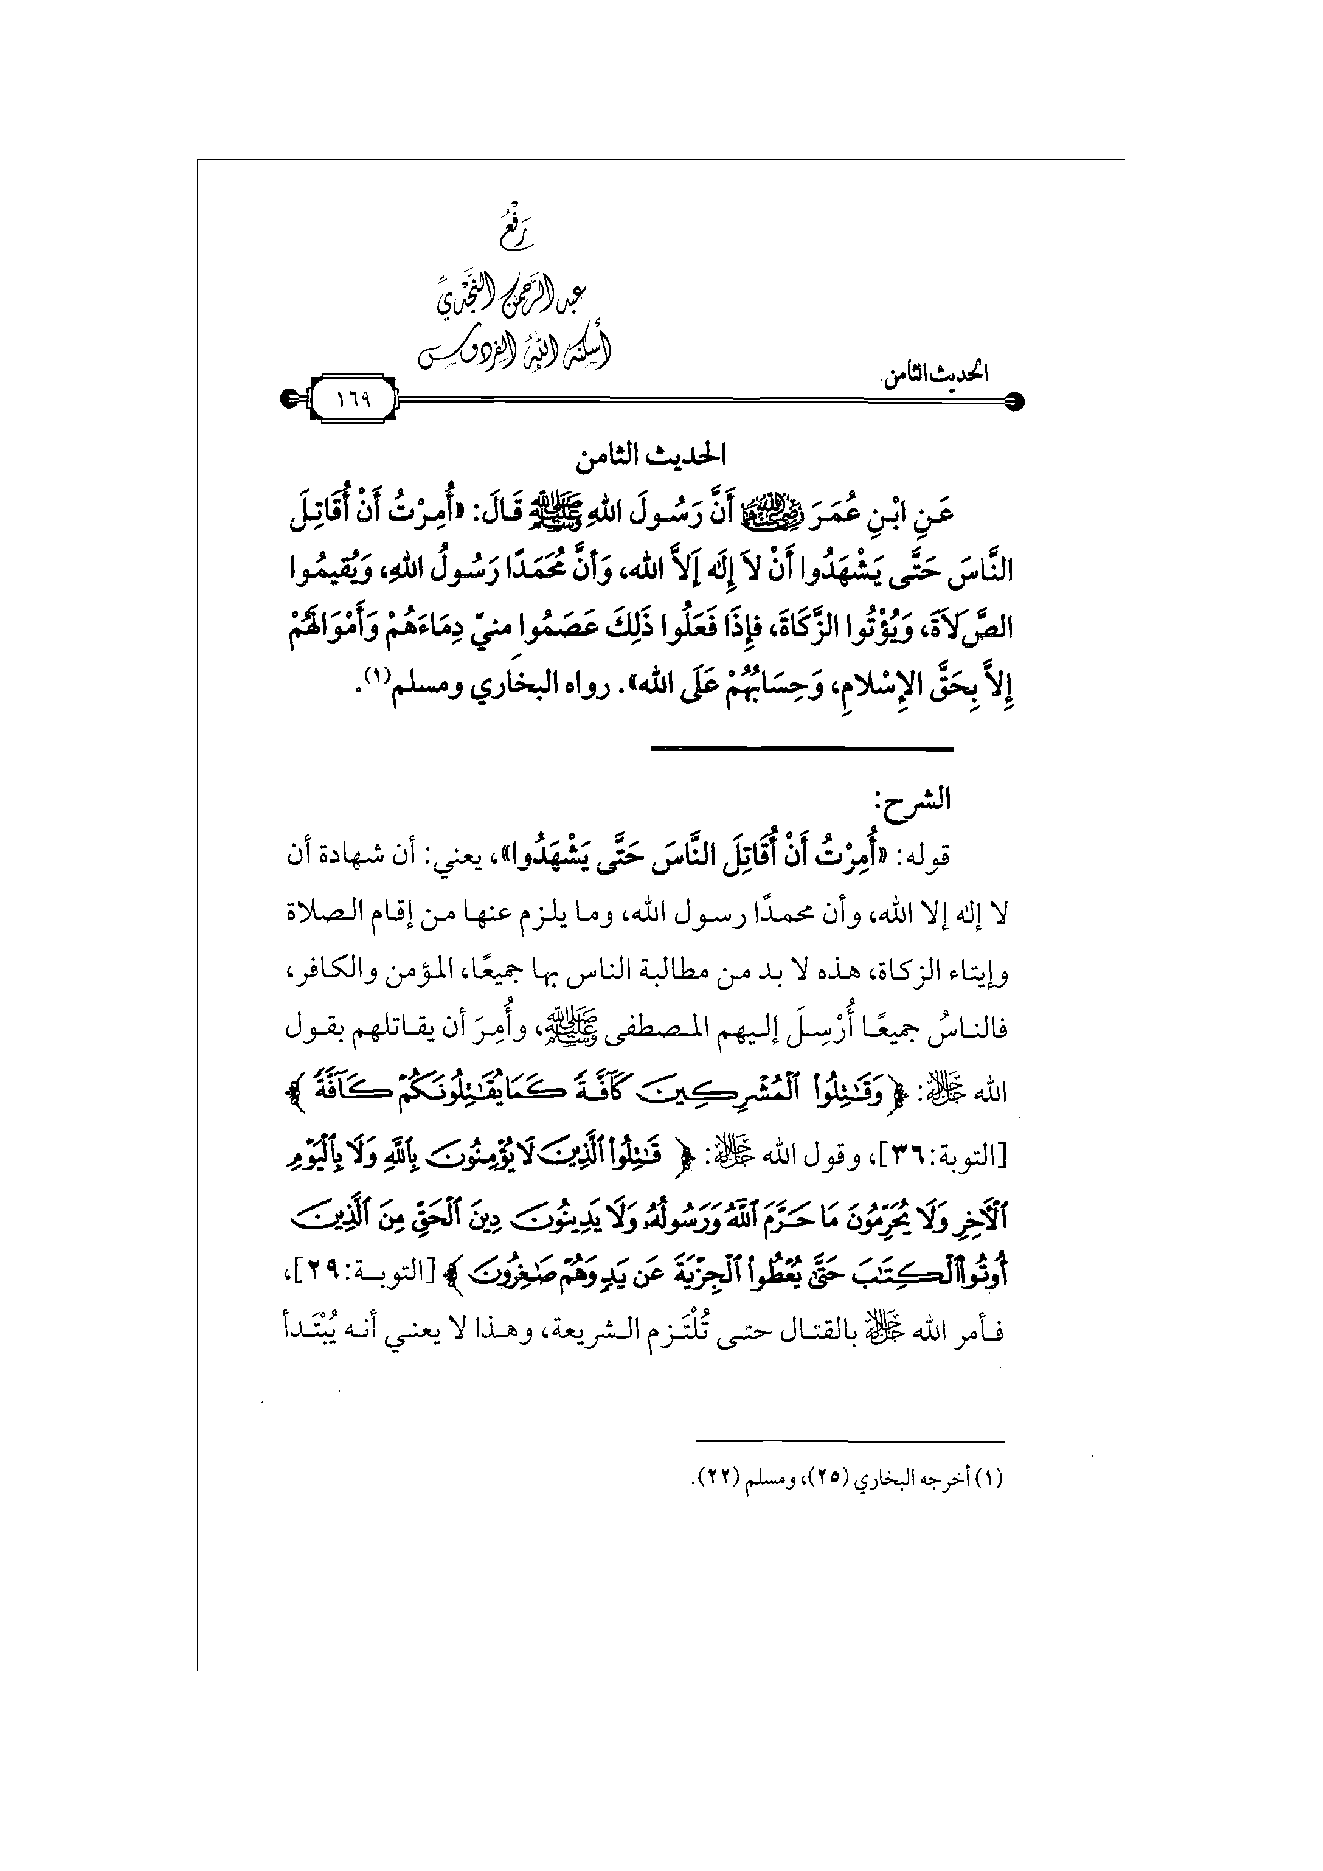 رَفْعُ
عبد الرحمن النجدي
أسكنه الله الفردوس
الحديث الثامن
١٦٩
الحديث الثامن
عَنِ ابْنِ عُمَرَ رضي الله عنهما أَنَّ رَسُولَ اللهِ ﷺ قَالَ: «أُمِرْتُ أَنْ أُقَاتِلَ
النَّاسَ حَتَّى يَشْهَدُوا أَنْ لاَ إِلَه إِلاَّ الله، وَأَنَّ مُحَمَدًا رَسُولُ اللهِ، وَيُقيمُوا
الصَّلاَةَ، وَيُؤْتُوا الزَّكَاةَ، فإِذَا فَعَلُوا ذَلِكَ عَصَمُوا مِنيّ دِمَاءَهُمْ وَأَمْوَالَهُمْ
إِلاَّ بِحَقَّ الإِسْلامِ، وَحِسَابُهُمْ عَلَى الله». رواه البخاري ومسلم(١).
الشرح:
قوله: «أُمِرْتُ أَنْ أُقَاتِلَ النَّاسَ حَتَّى يَشْهَدُوا»، يعني: أن شهادة أن
لا إله إلا الله، وأن محمدًا رسول الله، وما يلزم عنها من إقام الصلاة
وإيتاء الزكاة، هذه لا بد من مطالبة الناس بها جميعًا، المؤمن والكافر،
فالناسُ جميعًا أُرْسِلَ إليهم المصطفى ﷺ، وأُمِرَ أن يقاتلهم بقول
الله ﷻ: ﴿وَقَٰتِلُوا۟ ٱلْمُشْرِكِينَ كَآفَّةً كَمَا يُقَٰتِلُونَكُمْ كَآفَّةً﴾
[التوبة:٣٦]، وقول الله ﷻ: ﴿قَٰتِلُوا۟ ٱلَّذِينَ لَا يُؤْمِنُونَ بِٱللَّهِ وَلَا بِٱلْيَوْمِ
ٱلْءَاخِرِ وَلَا يُحَرِّمُونَ مَا حَرَّمَ ٱللَّهُ وَرَسُولُهُۥ وَلَا يَدِينُونَ دِينَ ٱلْحَقِّ مِنَ ٱلَّذِينَ
أُوتُوا۟ ٱلْكِتَٰبَ حَتَّىٰ يُعْطُوا۟ ٱلْجِزْيَةَ عَن يَدٍ وَهُمْ صَٰغِرُونَ﴾ [التوبة:٢٩]،
فأمر الله ﷻ بالقتال حتى تُلْتَزم الشريعة، وهذا لا يعني أنه يُبْتَدأ
(١) أخرجه البخاري (٢٥)، ومسلم (٢٢).